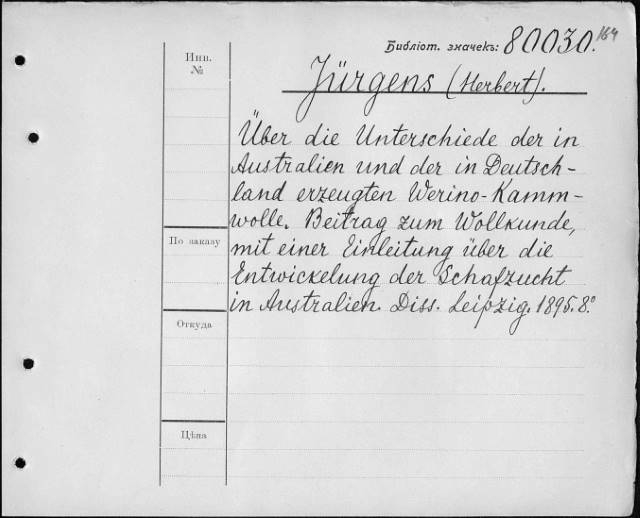 Библіот. значекъ: 80030.164
Инв. №
Jürgens (Herbert).
Über die Unterschiede der in
Australien und der in Deutsch-
land erzeugten Werino-Kamm-
wolle. Beitrag zum Wollkunde,
По заказу
mit einer Einleitung über die
Entwickelung der Schafzucht
in Australien. Diss. Leipzig. 1895. 8.°
Откуда
Цѣна